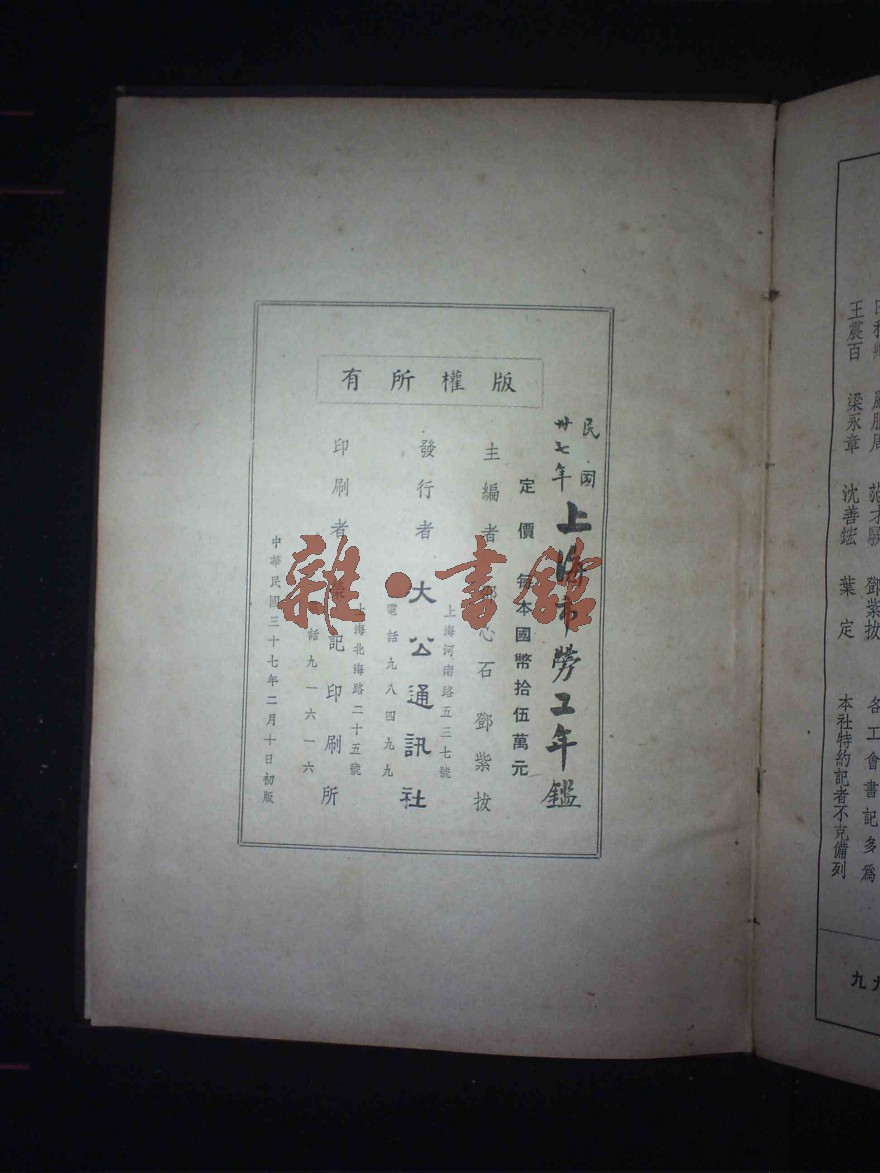 鄧紫拔 各工會書記多為
王震百 梁永章 沈善鋐 葉定 本社特約記者不克備列
版權所有
民國
卅七年
上海市勞工年鑑
定價 每本國幣拾伍萬元
主編者 心石 鄧紫拔
上海河南路五三七號
發行者 大公通訊社
電話九八四九九
上海北海路二十五號
印刷者 記印刷所
話九一六一六
中華民國三十七年二月十日初版
雜·書館